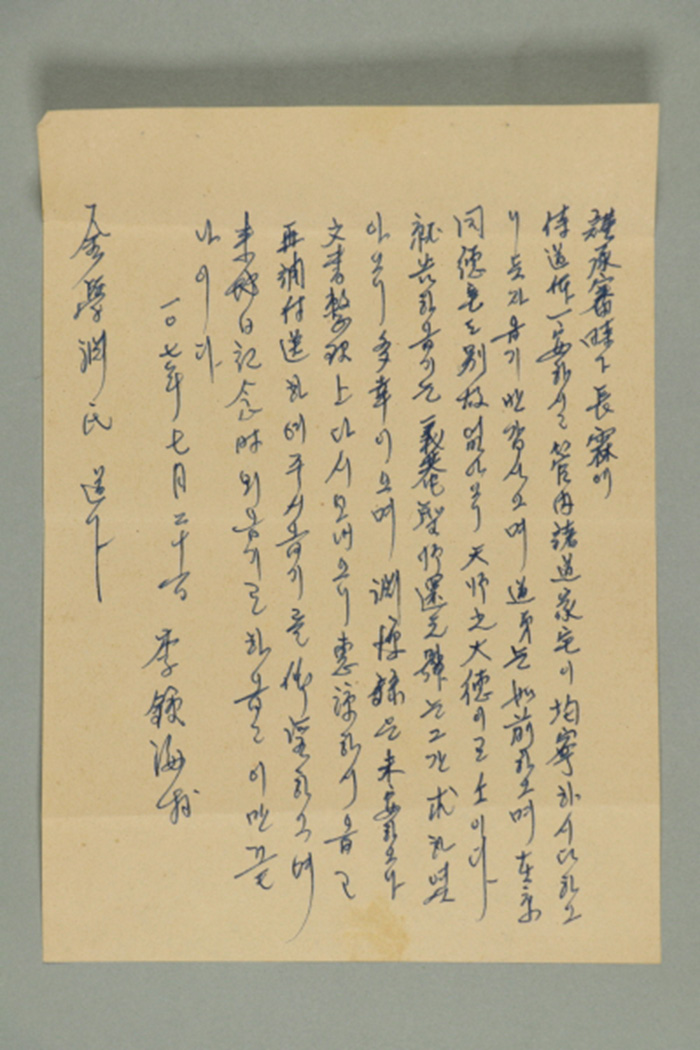 謹承審時下長霖이
侍道體一安하시고 管內諸道家宅이 均寧하시다하오
니 듯자옵기 반갑사오며 道弟는 如前하오며 在京
同德은도 別故업사오니 天師之大德이로소이다
就告하옵기는 義菴聖師還元 는 그간 求하 
아오니 多幸이오며 淵源錄은 未安하오나
文書整理上 다시 보내오니 惠諒하시옵고
再補付送하여 주시옵기를 仰望하오며
來 地日記念時 뵈옵기로 하옵고 이만 끝
나이다
一〇七年 七月 二十 日 李 海 拜
金學淵氏 道下